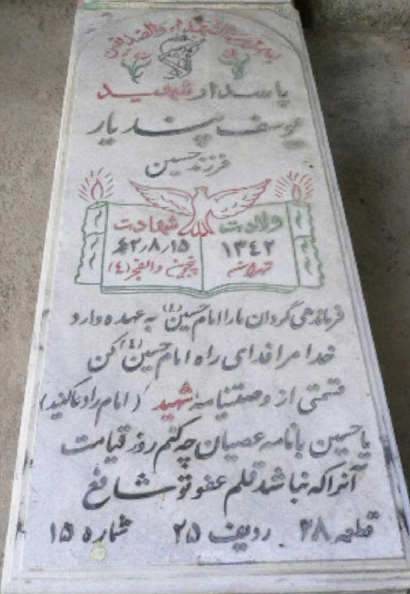 پاسدار شهید
یوسف پندیار
فرزند حسین
ولادت
۱۳۴۲
تهران
شهادت
۶۲/۸/۱۵
پنجوین والفجر (۴)
فرماندهی گردان ما را امام حسین (ع) به عهده دارد
خدا مرا فدای راه امام حسین (ع) کن
قسمتی از وصیتنامه شهید (امام را دعا کنید)
یا حسین با نامه عصیان چه کنم روز قیامت
آنرا که نباشد قلم عفو تو شافع
قطعه ۲۸ ردیف ۲۵ شماره ۱۵